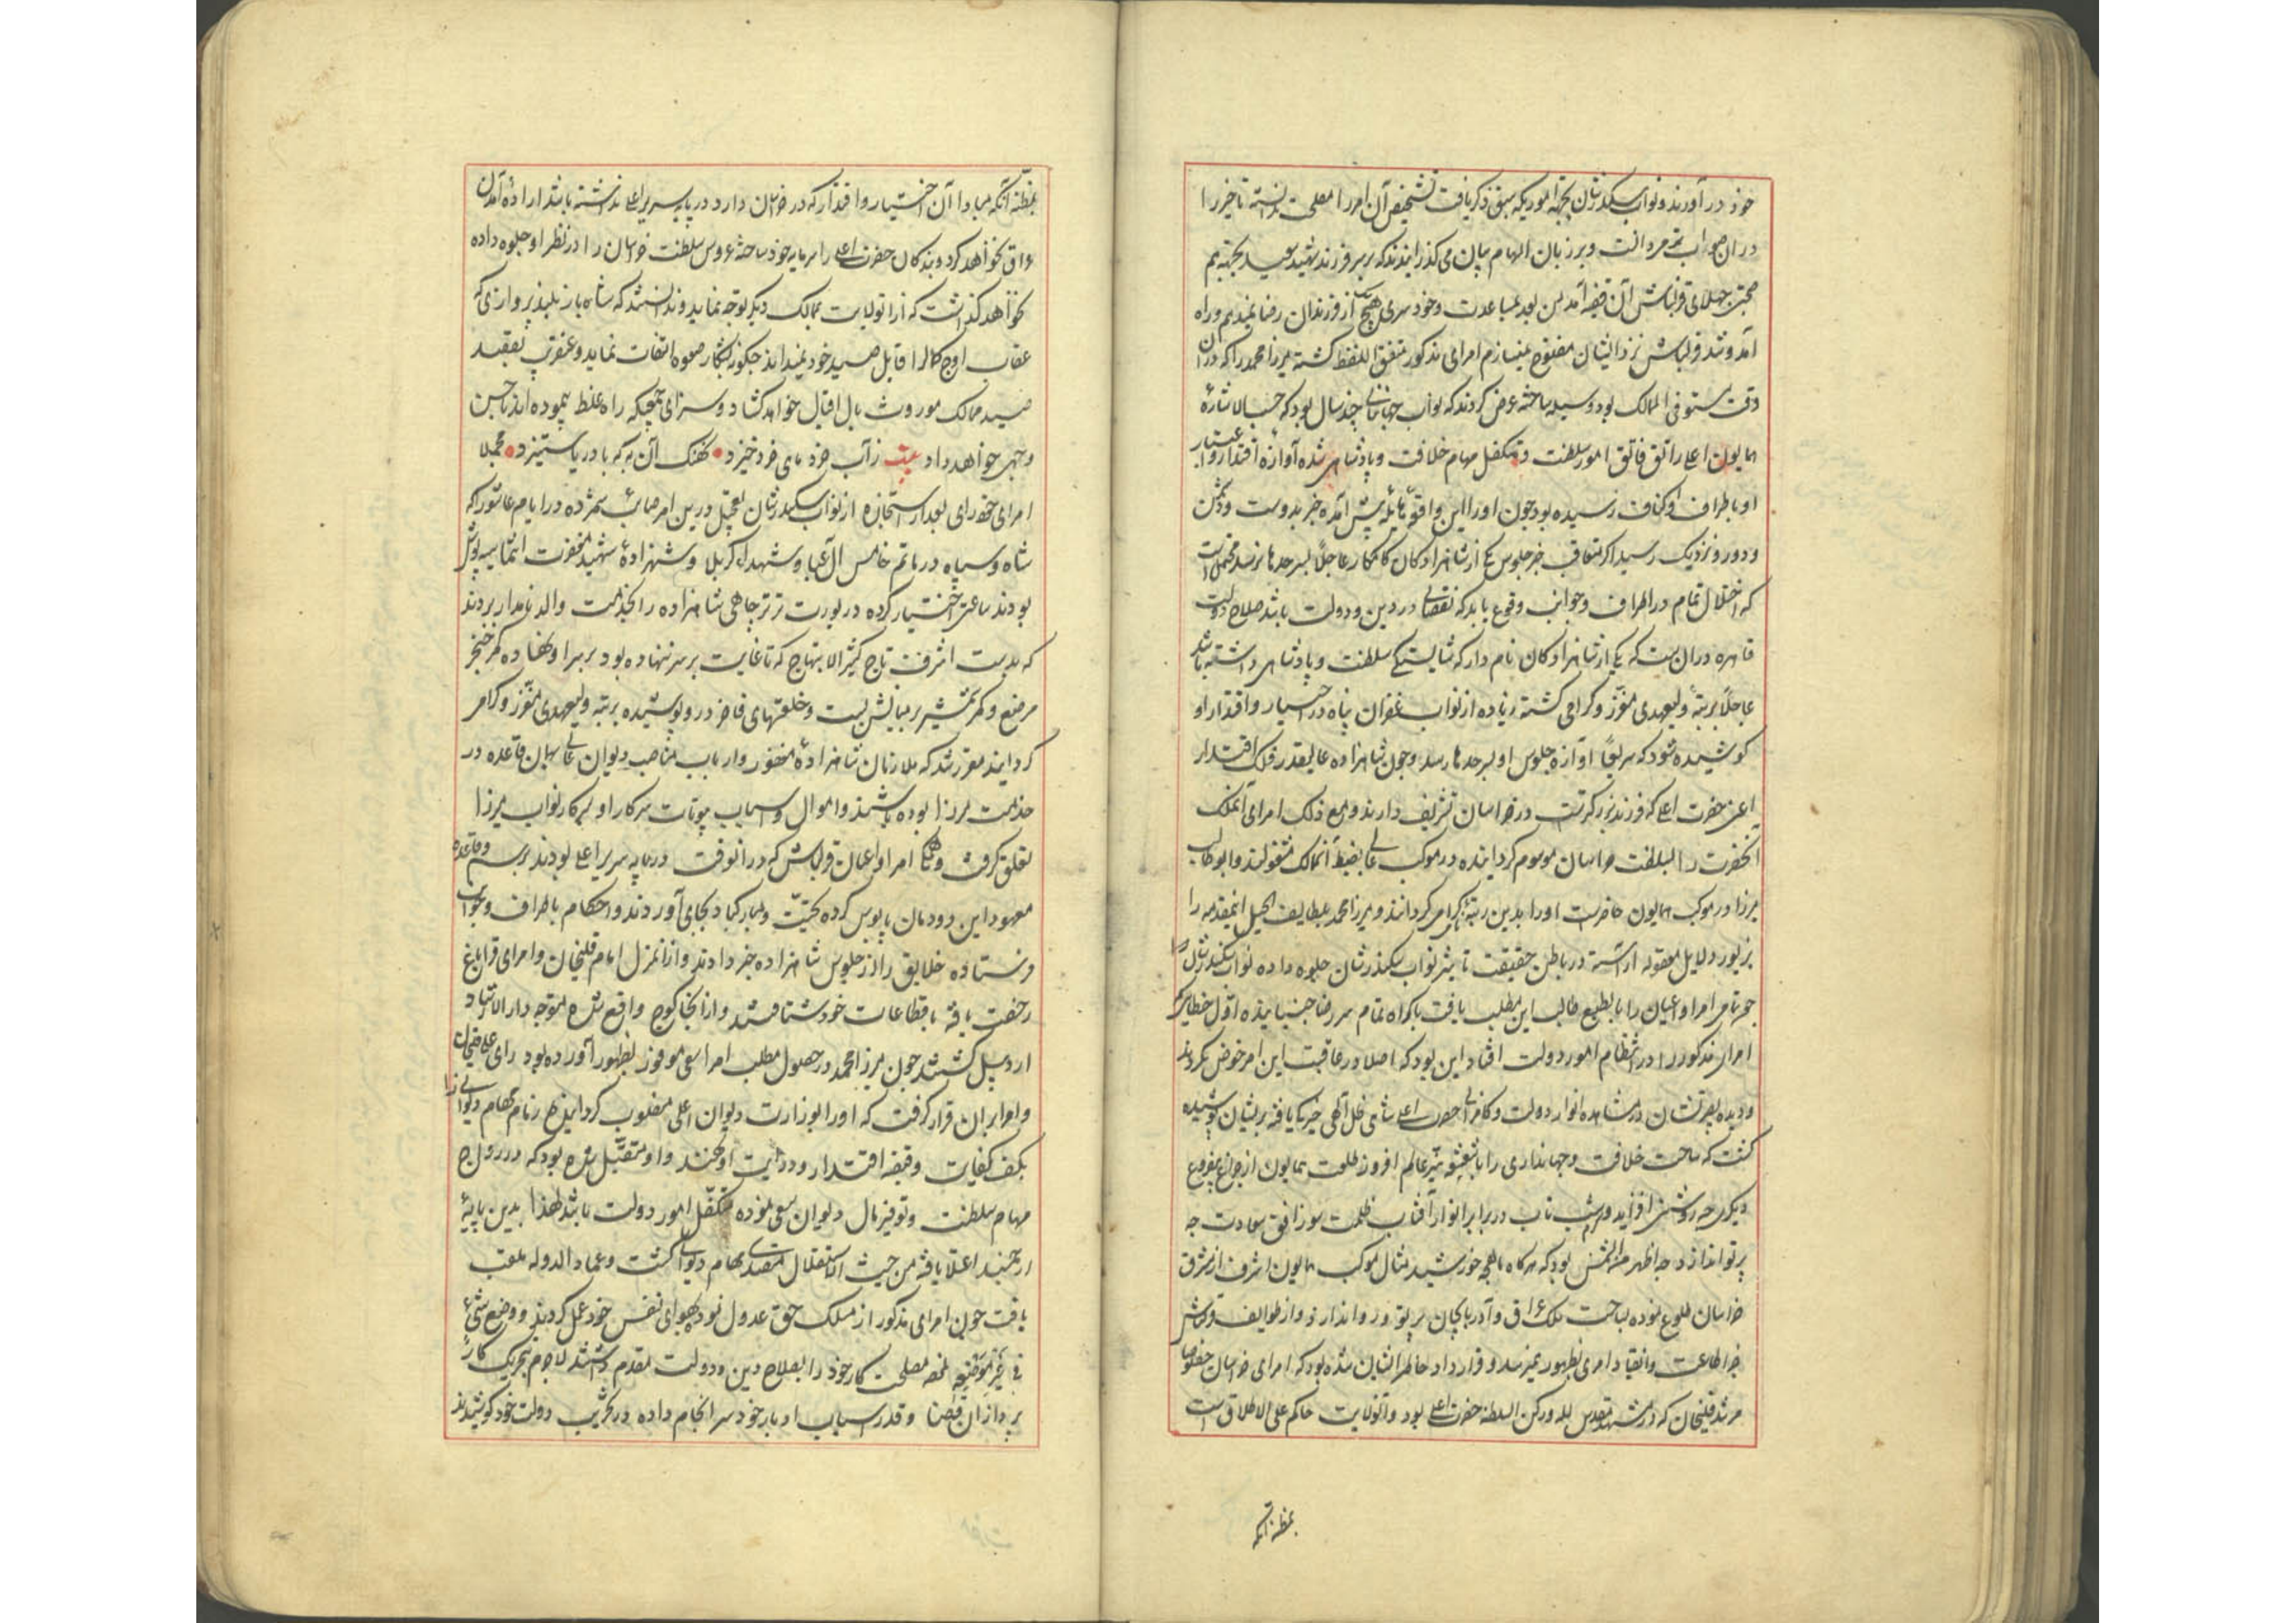 خود در آورند و نواب سکندرشان بجهة اموریکه سبق ذکر یافت تشخیص آن امر را مصلحت ندانسته تاخیر را
در ان صواب تر میدانست و بر زبان الهام بیان می گذرانیدند که بر سر فرزند شهید سعید بجهته بم
صحبتی جهلای قزلباش آن قضیه آمد من بعد بمباعدت و خودسری هیچیک از فرزندان رضا نمیدهم و راه
آمد و شد قزلباش نزد ایشان مفتوح نمیسازم امرای مذکور متفق اللفظ گشته میرزا محمد را که در ان
وقت مستوفی الممالک بود وسیله ساخته عرض کردند که نواب جهانبانی چند سال بود که حسب الاشارهٔ
همایون اعلی راتق فاتق امور سلطنت و متکفل مهام خلافت و پادشاهی شده آوازه اقتدار و اعتبار
او باطراف و اکناف رسیده بود چون او را این واقعه هایله پیش آمده خبر بدوست و دشمن
و دور و نزدیک رسید اگر متعاقب خبر جلوس یکی از شاهزادگان کامکار عاجلاً بسرحدها نرسد محتمل است
که اختلال تمام در اطراف و جوانب وقوع یابد که نقصانی در دین و دولت باشد صلاح دولت
قاهره در ان است که یکی از شاهزادگان نامدار که شایستگی سلطنت و پادشاهی داشته باشد
عاجلاً برتبهٔ ولیعهدی معزز و گرامی گشته زیاده از نواب غفران پناه در اختیار و اقتدار او
کوشیده شود که سریعاً آوازه جلوس او بسرحدها رسد و چون شاهزاده عالیقدر فلک اقتدار
اعنی حضرت اعلی که فرزند بزرگ تست در خراسان تشریف دارند و مع ذلک امرای آنملک
آنحضرت را بسلطنت خراسان موسوم گردانیده در موکب عالی بضبط آنممالک مشغولند و ابوطالب
میرزا در موکب همایون حاضر است او را بدین رتبهٔ گرامی گردانند و میرزا محمد بلطایف الحیل اینمقدمه را
بزیور دلایل معقوله آراسته در باطن حقیقت تاثیر نواب سکندرشان جلوه داده نواب سکندرشان
چون تمام امرا و اعیان را بالطبع طالب این مطلب یافت باکراه تمام سر رضا جنبانیده اول خطایی که
امرای مذکور را در انتظام امور دولت افتاد این بود که اصلا در عاقبت این امر خوض نکردند
و دیده بصیرتشان در مشاهده انوار دولت و کامرانی حضرت اعلی شاهی ظل الهی خیره گی یافته بریشان پوشیده
گشت که ساحت خلافت و جهانداری را با شعشعهٔ نیر عالم افروز طلعت همایون از چراغ بیفروغ
دیگری چه روشنی افزاید و کرم شب تاب در برابر انوار آفتاب ظلمت سوز افق سعادت چه
پرتو اندازد چه اظهر من الشمس بود که هرگاه ماهچه خورشید مثال موکب همایون اشرف از مشرق
خراسان طلوع نموده بساحت ملک عراق و آذربایجان پرتو ورود اندازد از طوایف قزلباش
جز اطاعت و انقیاد امری بظهور نمیرسد و قرارداد خاطر ایشان شده بود که امرای خراسان خصوصا
مرشد قلیخان که در مشهد مقدس لله و رکن السلطنه حضرت اعلی بود و در انولایت حاکم علی الاطلاق است
بمظنه آنکه
بمظنّه آنکه مبادا آن اختیار و اقتدار که در خراسان دارد در پایه سریر اعلی نداشته باشد اراده آمدن
عراق نخواهد کرد و بندگان حضرت اعلی را سرمایه خود ساخته عروس سلطنت خراسان را در نظر او جلوه داده
نخواهد گذاشت که از انولایت بممالک دیگر توجه نماید و ندانستند که شاه باز بلندپروازی که
عقاب اوج کمال را قابل صید خود نمیداند چگونه بشکار صعوه التفات نماید و عنقریب بقصد
صید ممالک موروث بال اقبال خواهد گشاد و سزای جمعی که راه غلط پیموده اند باحسن
وجهی خواهد داد بیت ز آب خرد ماهی خرد خیزد • نهنگ آن به که با دریا ستیزد • مجملا
امرای خودرای بعد از استجازه از نواب سکندرشان تعجیل درین امر صائب شمرده در ایام عاشورا که
شاه و سپاه در ماتم خامس آل عبا و شهداء کربلا و شهزادهٔ شهید مغفرت انتما سیه پوش
بودند ساعتی اختیار کرده در یورت ترترچاهی شاهزاده را بخدمت والد نامدار بردند
که بدست اشرف تاج کثیر الابتهاج که تا غایت بر سر ننهاده بود بر سر او نهاده کمر خنجر
مرصع و کمر شمشیر بر میانش بست و خلعتهای فاخر درو پوشیده برتبه ولیعهدی معزز و گرامی
گردانید مقرر شد که ملازمان شاهزادهٔ مغفور و ارباب مناصب دیوان عالی بهمان قاعده در
خدمت میرزا بوده باشند و اموال و اسباب بیوتات سرکار او بسرکار نواب میرزا
تعلق گرفت و همگی امرا و اعیان قزلباش که در انوقت در پایه سریر اعلی بودند برسم و قاعدهٔ
معهود این دودمان پایبوس کرده تحیّت و مبارکباد بجای آوردند و احکام باطراف و جوانب
فرستاده خلایق را از جلوس شاهزاده خبر دادند و از انمنزل امام قلیخان و امرای قراباغ
رخصت یافته باقطاعات خود شتافتند و از انجا کوچ واقع شده متوجه دار الارشاد
اردبیل گشتند چون میرزا محمد در حصول مطلب امرا سعی موفور بظهور آورده بود رای علیقلیخان
و امرا بران قرار گرفت که او را بوزارت دیوان اعلی منصوب گردانیده زمام مهام دیوانی را
بکف کفایت و قبضه اقتدار و درایت او نهند و او متقبّل شده بود که در رواج
مهام سلطنت و توفیر مال دیوان سعی نموده متکفّل امور دولت باشد لهذا بدین پایهٔ
ارجمند اعتلا یافته من حیث الاستقلال متصدی مهام دیوانی گشت و عماد الدوله ملقب
یافت چون امرای مذکور از مسلک حق عدول نموده بهوای نفس خود عمل کردند و وضع شئ
فی غیر موضعه نمصه مصلحت کار خود را بصلاح دین و دولت مقدم داشتند لاجرم بتحریک کار
پردازان قضا و قدر اسباب ادبار خود سرانجام داده در تخریب دولت خود کوشیدند